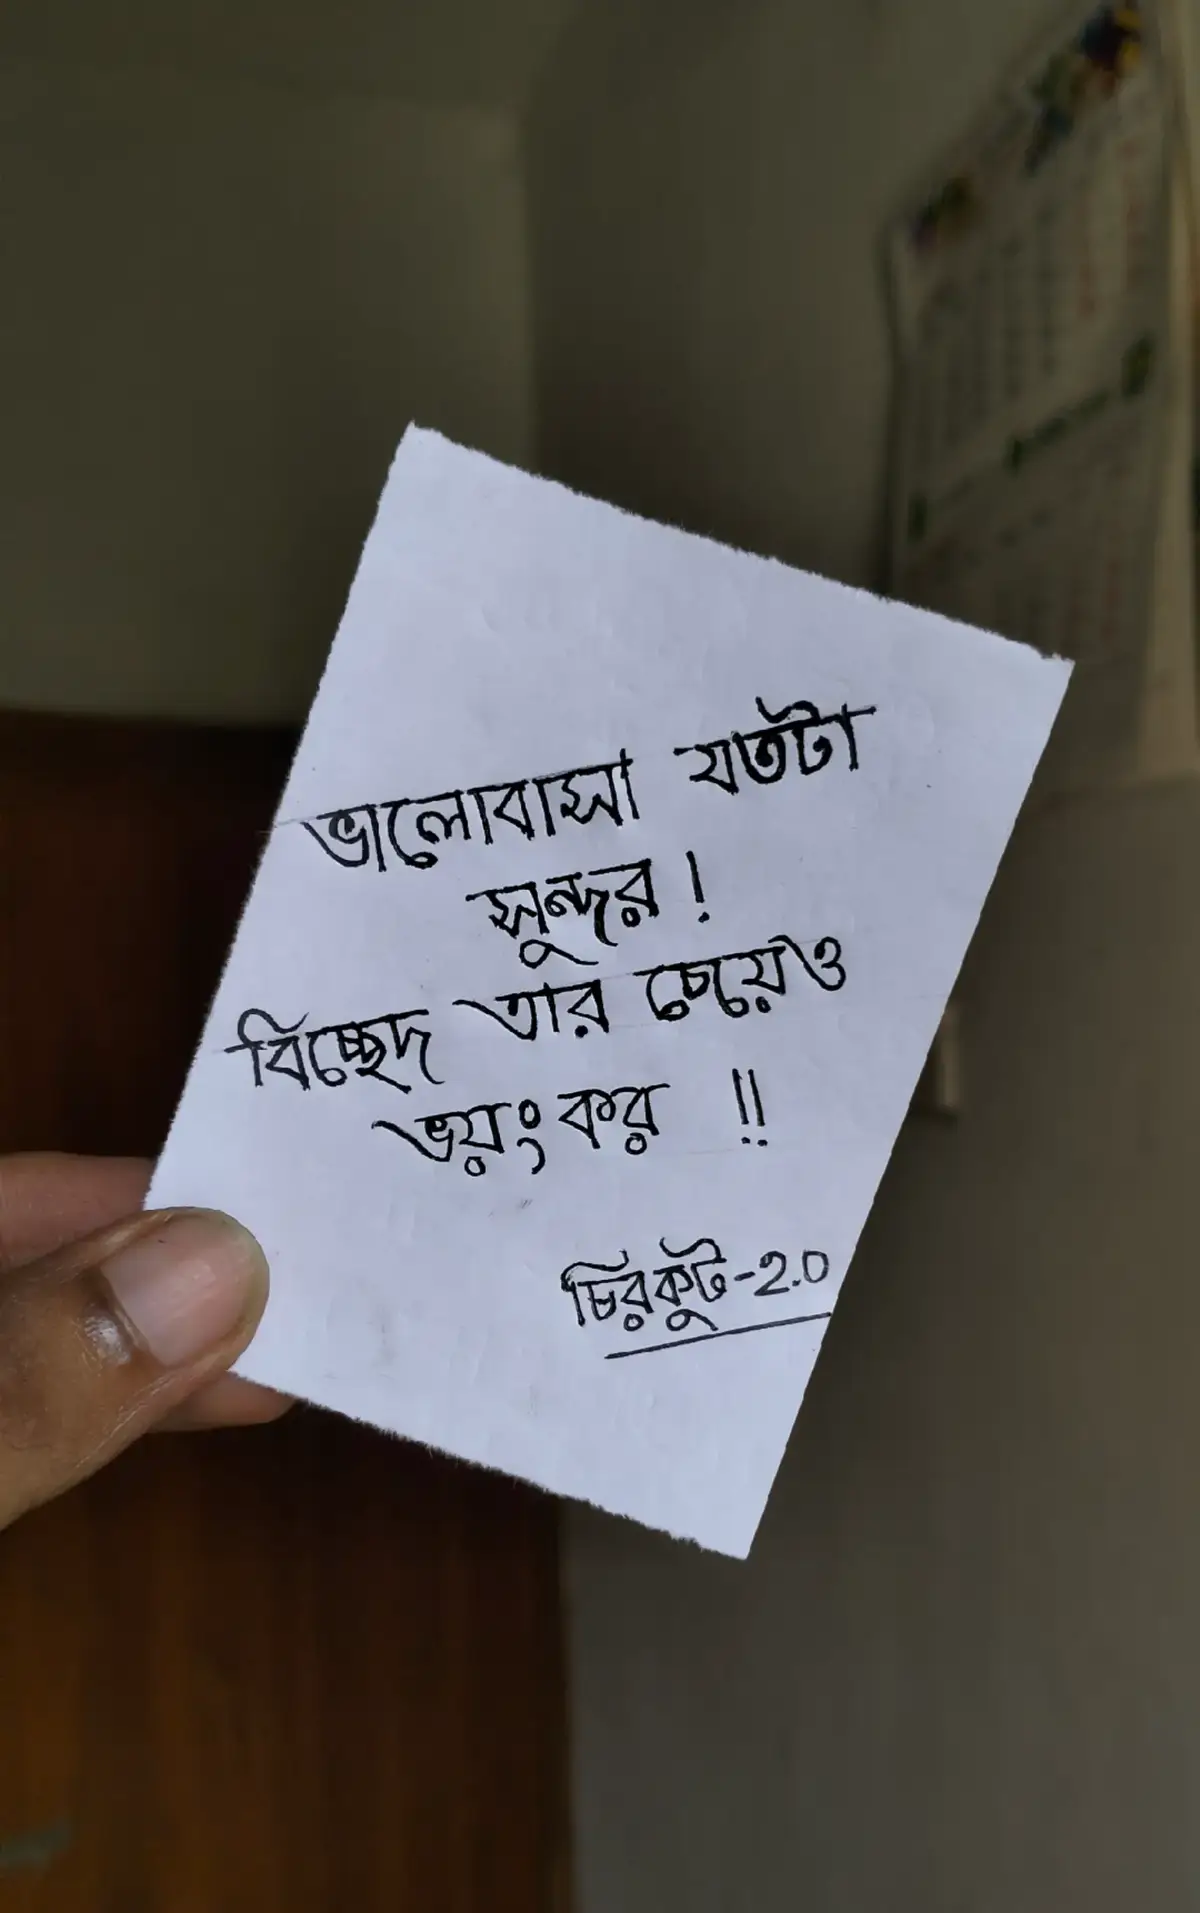 ভালোবাসা যতটা
সুন্দর !
বিচ্ছেদ তার চেয়েও
ভয়ংকর !!
চিরকুট-2.0